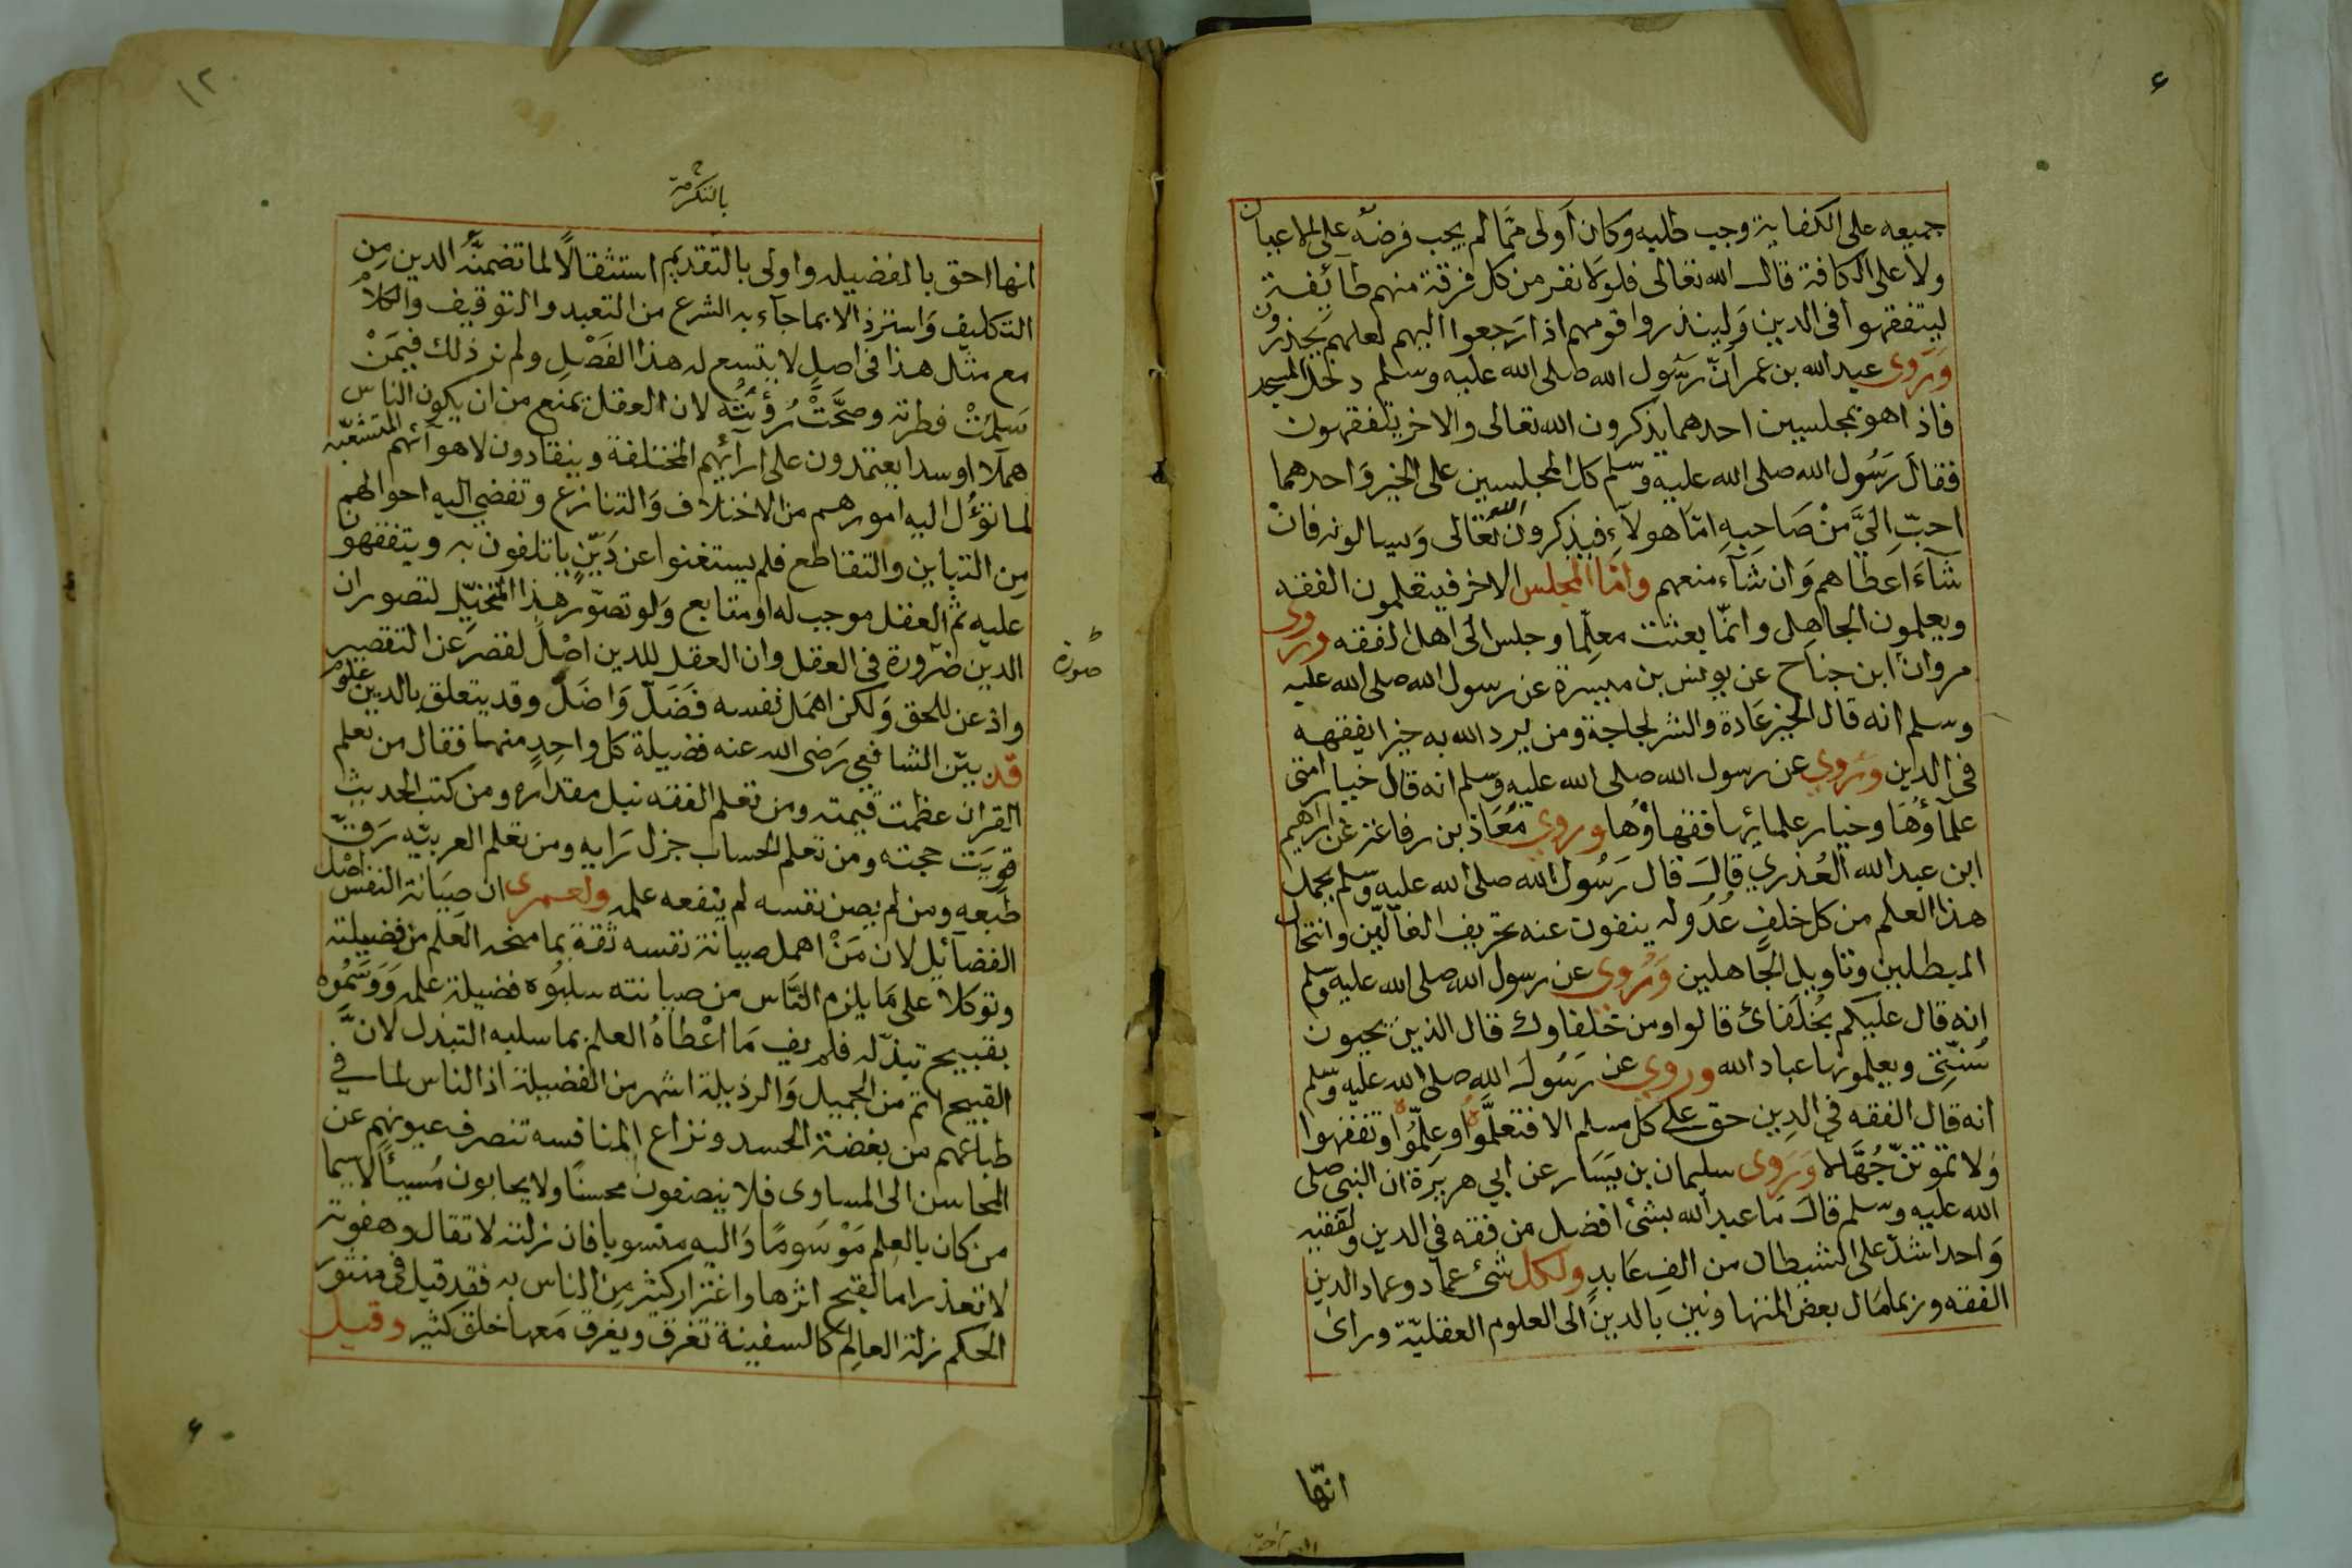 ۶
جميعه على الكفاية وجب طلبه وكان اولى ممّا لم يجب فرضه على الاعيان
ولا على الكافة قال الله تعالى فلولا نفر من كل فرقة منهم طآئفة
ليتفقهوا فى الدين ولينذروا قومهم اذا رجعوا اليهم لعلهم يحذرون
وَرَوى عبد الله بن عمر انّ رسول الله صلى الله عليه وسلم دخل المسجد
فاذا هو بمجلسين احدهما يذكرون الله تعالى والاخر يتفقهون
فقال رَسُول الله صلى الله عليه وسلم كل المجلسين على الخير وَاحدهما
احبّ اليَّ مِنْ صَاحبهِ امّا هولآء فيذكرون الله تعالى وَيسالونه فان
شَآءَ اعطاهم وَان شآء منعهم وامّا المجلس الاخر فيتعلمون الفقه
ويعلمون الجاهل وانّما بعثت معلّما وجلس الى اهل الفقه وروى
مروان ابن جناح عن يونس بن ميسرة عن رسول الله صلى الله عليه
وسلم انه قال الخير عَادة والشر لجاجة ومن يرد الله به خيرا يفقهه
فى الدين وَروي عن رسول الله صلى الله عليه وسلم انه قال خيار امتى
علمآؤُهَا وخيار علمائها فقهاؤُها وروي مُعَاذ بن رفاعة عن ابراهيم
ابن عبد الله العُذري قالَ قال رَسُول الله صلى الله عليه وسلم يحمل
هذا العلم من كل خلفٍ عُدُوله ينفون عنه تحريف الغآلين وانتحال
المبطلين وتاويل الجَّاهلين وَرُوى عن رسول الله صلى الله عليه وسلم
انه قال عليكم بخُلَفائ قالوا ومن خلفاوك قال الذين يحيون
سُنتِى ويعلمونها عباد الله وروي عن رَسُولَ الله صلى الله عليه وسلم
انه قال الفقه في الدِين حق على كل مسلم الا فتعلّموا وعلِّمُوا وتفقهوا
وَلا تموتنّ جُهَّالا وَرَوى سليمان بن يَسَار عن ابي هريرَة ان النبى صلى
الله عليه وسلم قالَ مَا عبد الله بشئ افضل من فقه في الدين ولفقيه
وَاحد اشدّ على الشيطان من الفِ عَابدٍ ولكل شئ عماد وعماد الدين
الفقه وربما مَال بعض المتهاونين بالدين الى العلوم العقليّة وراى
انها
١٢
انها احق بالفضيله واولى بالتقديم استثقالًا لما تضمنَّه الدين مِن
التكليف وَاسترذالا بما جآء به الشرع من التعبد والتوقيف والكلام
مع مثل هذا فى اصل لا يتسع له هذا الفَصْلِ ولم نر ذلك فيمَنْ
سَلِمَتْ فطرته وصحَّتْ رُؤيَتُه لان العقل يمنع من ان يكون الناس
هملا او سدا يعتمدون على ارآئهم المختلفة وينقادون لاهوآئهم المتشعبه
لما تؤُل اليه امورهم من الاختلاف وَالتنازع وتفضي اليه احوالهم
مِن التباين والتقاطع فلم يستغنوا عن دَيّنٍ ياتلفون به ويتفقهون
عليه ثم العقل موجب له او متابع وَلو تصوّر هذا المختيّل لتصور ان
الدين ضرورة فى العقل وان العقل للدين اصْل لقصر عن التقصير
صورة
واذعن للحق وَلكن اهمَل نفسه فَضَلّ وَاضَلّ وقد يتعلق بالدين علوم
قد بيّن الشافعي رَضى الله عنه فضيلة كل واحِدٍ منها فقال من تعلم
القران عظمت قيمته ومن تعلم الفقه نبل مقداره ومن كتب الحديث
قويَت حجته ومن تعلم الحساب جزل رَايه ومن تعلم العربيّه رَقّ
طبعه ومن لم يصن نفسه لم ينفعه علمه ولعمرى ان صِيَانة النفس اصْل
الفضآئل لان مَنْ اهمل صيانة نفسه ثقة بما منحه العِلم من فضيلته
وتوكلا على مَا يلزم النّاس من صيانته سلبُوه فضيلة علمه وَوَسَمُوه
بقبيح تبذّله فلم يفِ مَا اعْطاهُ العلم بما سلبه التبذل لانَّ
القبيح انم من الجميل وَالرذيلة اشهر من الفضيلة اذ الناس لما في
طبائعهم من بغضة الحسد ونزاع المنافسه تنصرف عيونهم عن
المحاسن الى المساوى فلا ينصفون محسنًا ولا يحابون مُسيئًا لا سيما
من كان بالعِلم مَوْسَومًا وَاليه منسوبا فان زلته لا تقال وهفوته
لا تعذر اما لقبح اثرها واغترار كثير مِن الناس به فقد قيل فى منثور
الحكم زلة العالِم كالسفينة تغرق ويغرق مَعها خلق كثير وقيل
۶